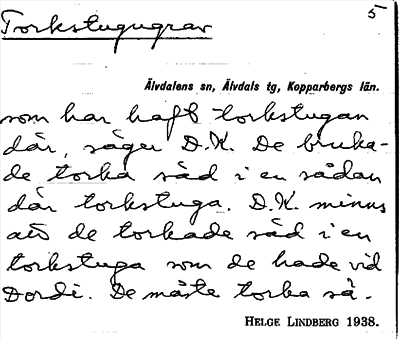 Torkstugugrav
5
Älvdalens sn, Älvdals tg, Kopparbergs län.
som har haft torkstugan
där, säger D.K. De bruka-
de torka säd i en sådan
där torkstuga. D.K. minns
att de torkade säd i en
torkstuga som de hade vid
Dordi. De måste torka så-
HELGE LINDBERG 1938.